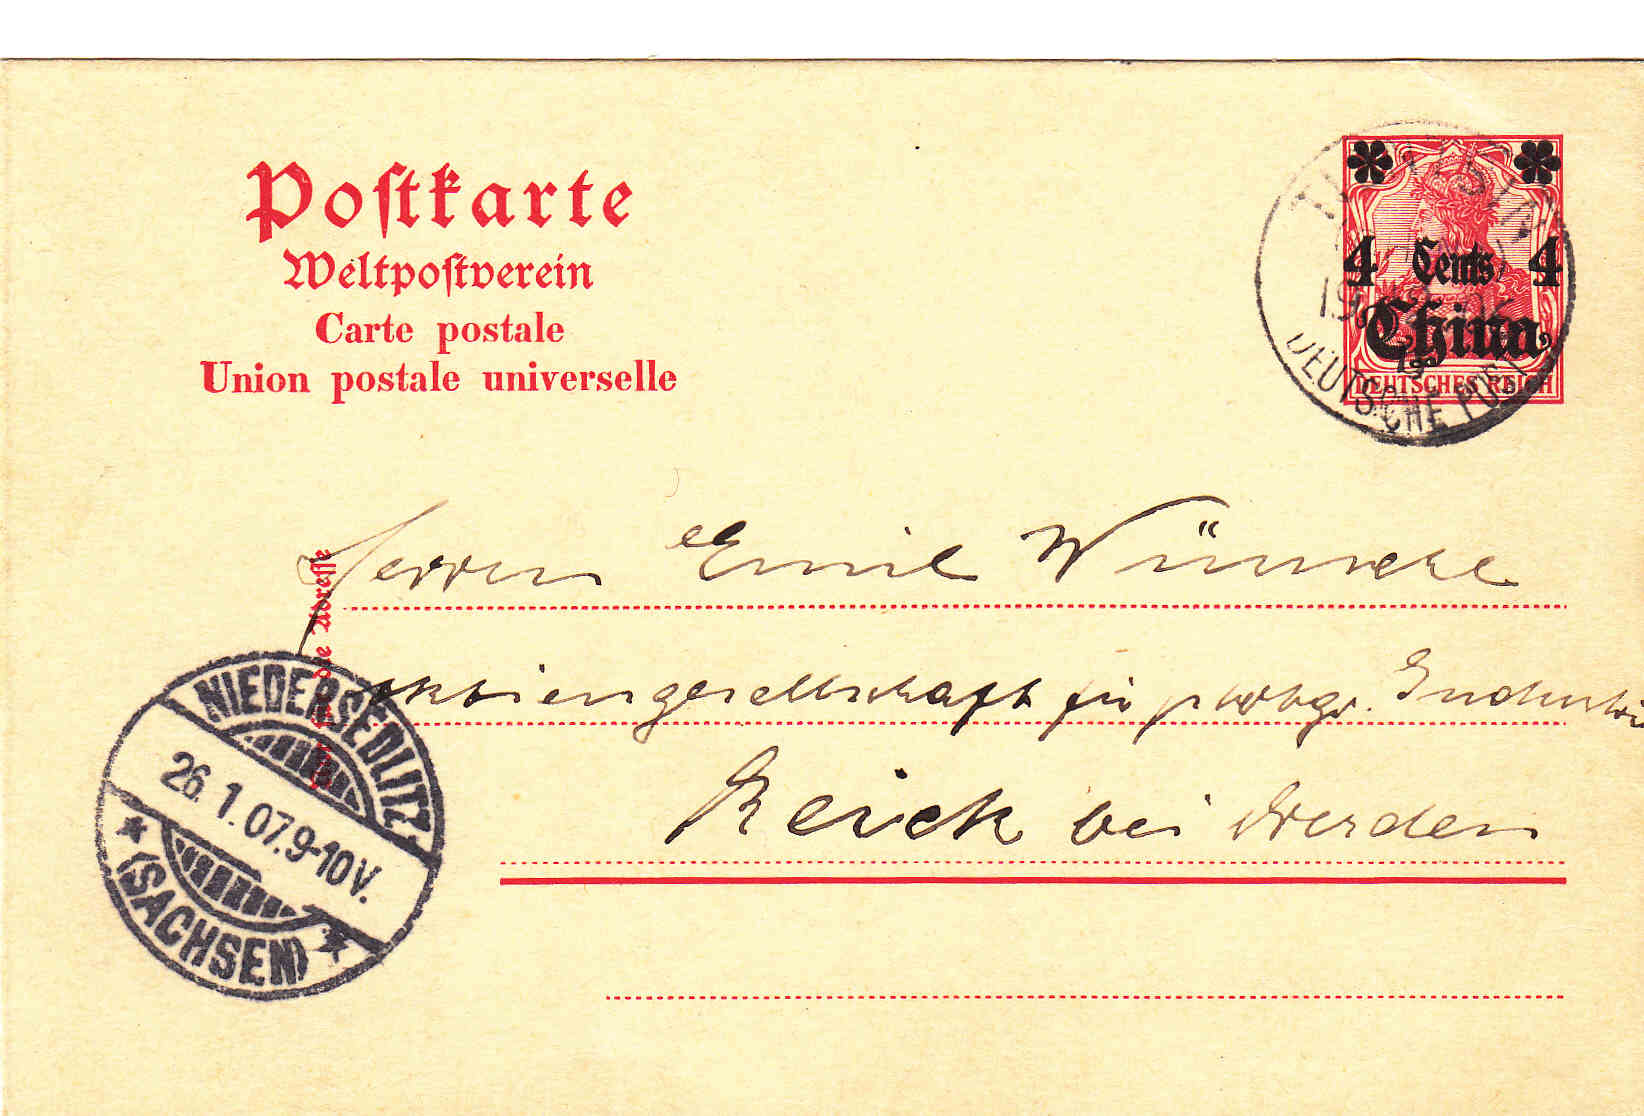 Postkarte
Weltpostverein
Carte postale
Union postale universelle
4 Cents 4
China
DEUTSCHES REICH
DEUTSCHE POST
Herrn Emil Wünsche
Aktiengesellschaft für photogr. Industrie
Reick bei Dresden
die Adresse
NIEDERSEDLITZ
26.1.07.9-10V.
(SACHSEN)